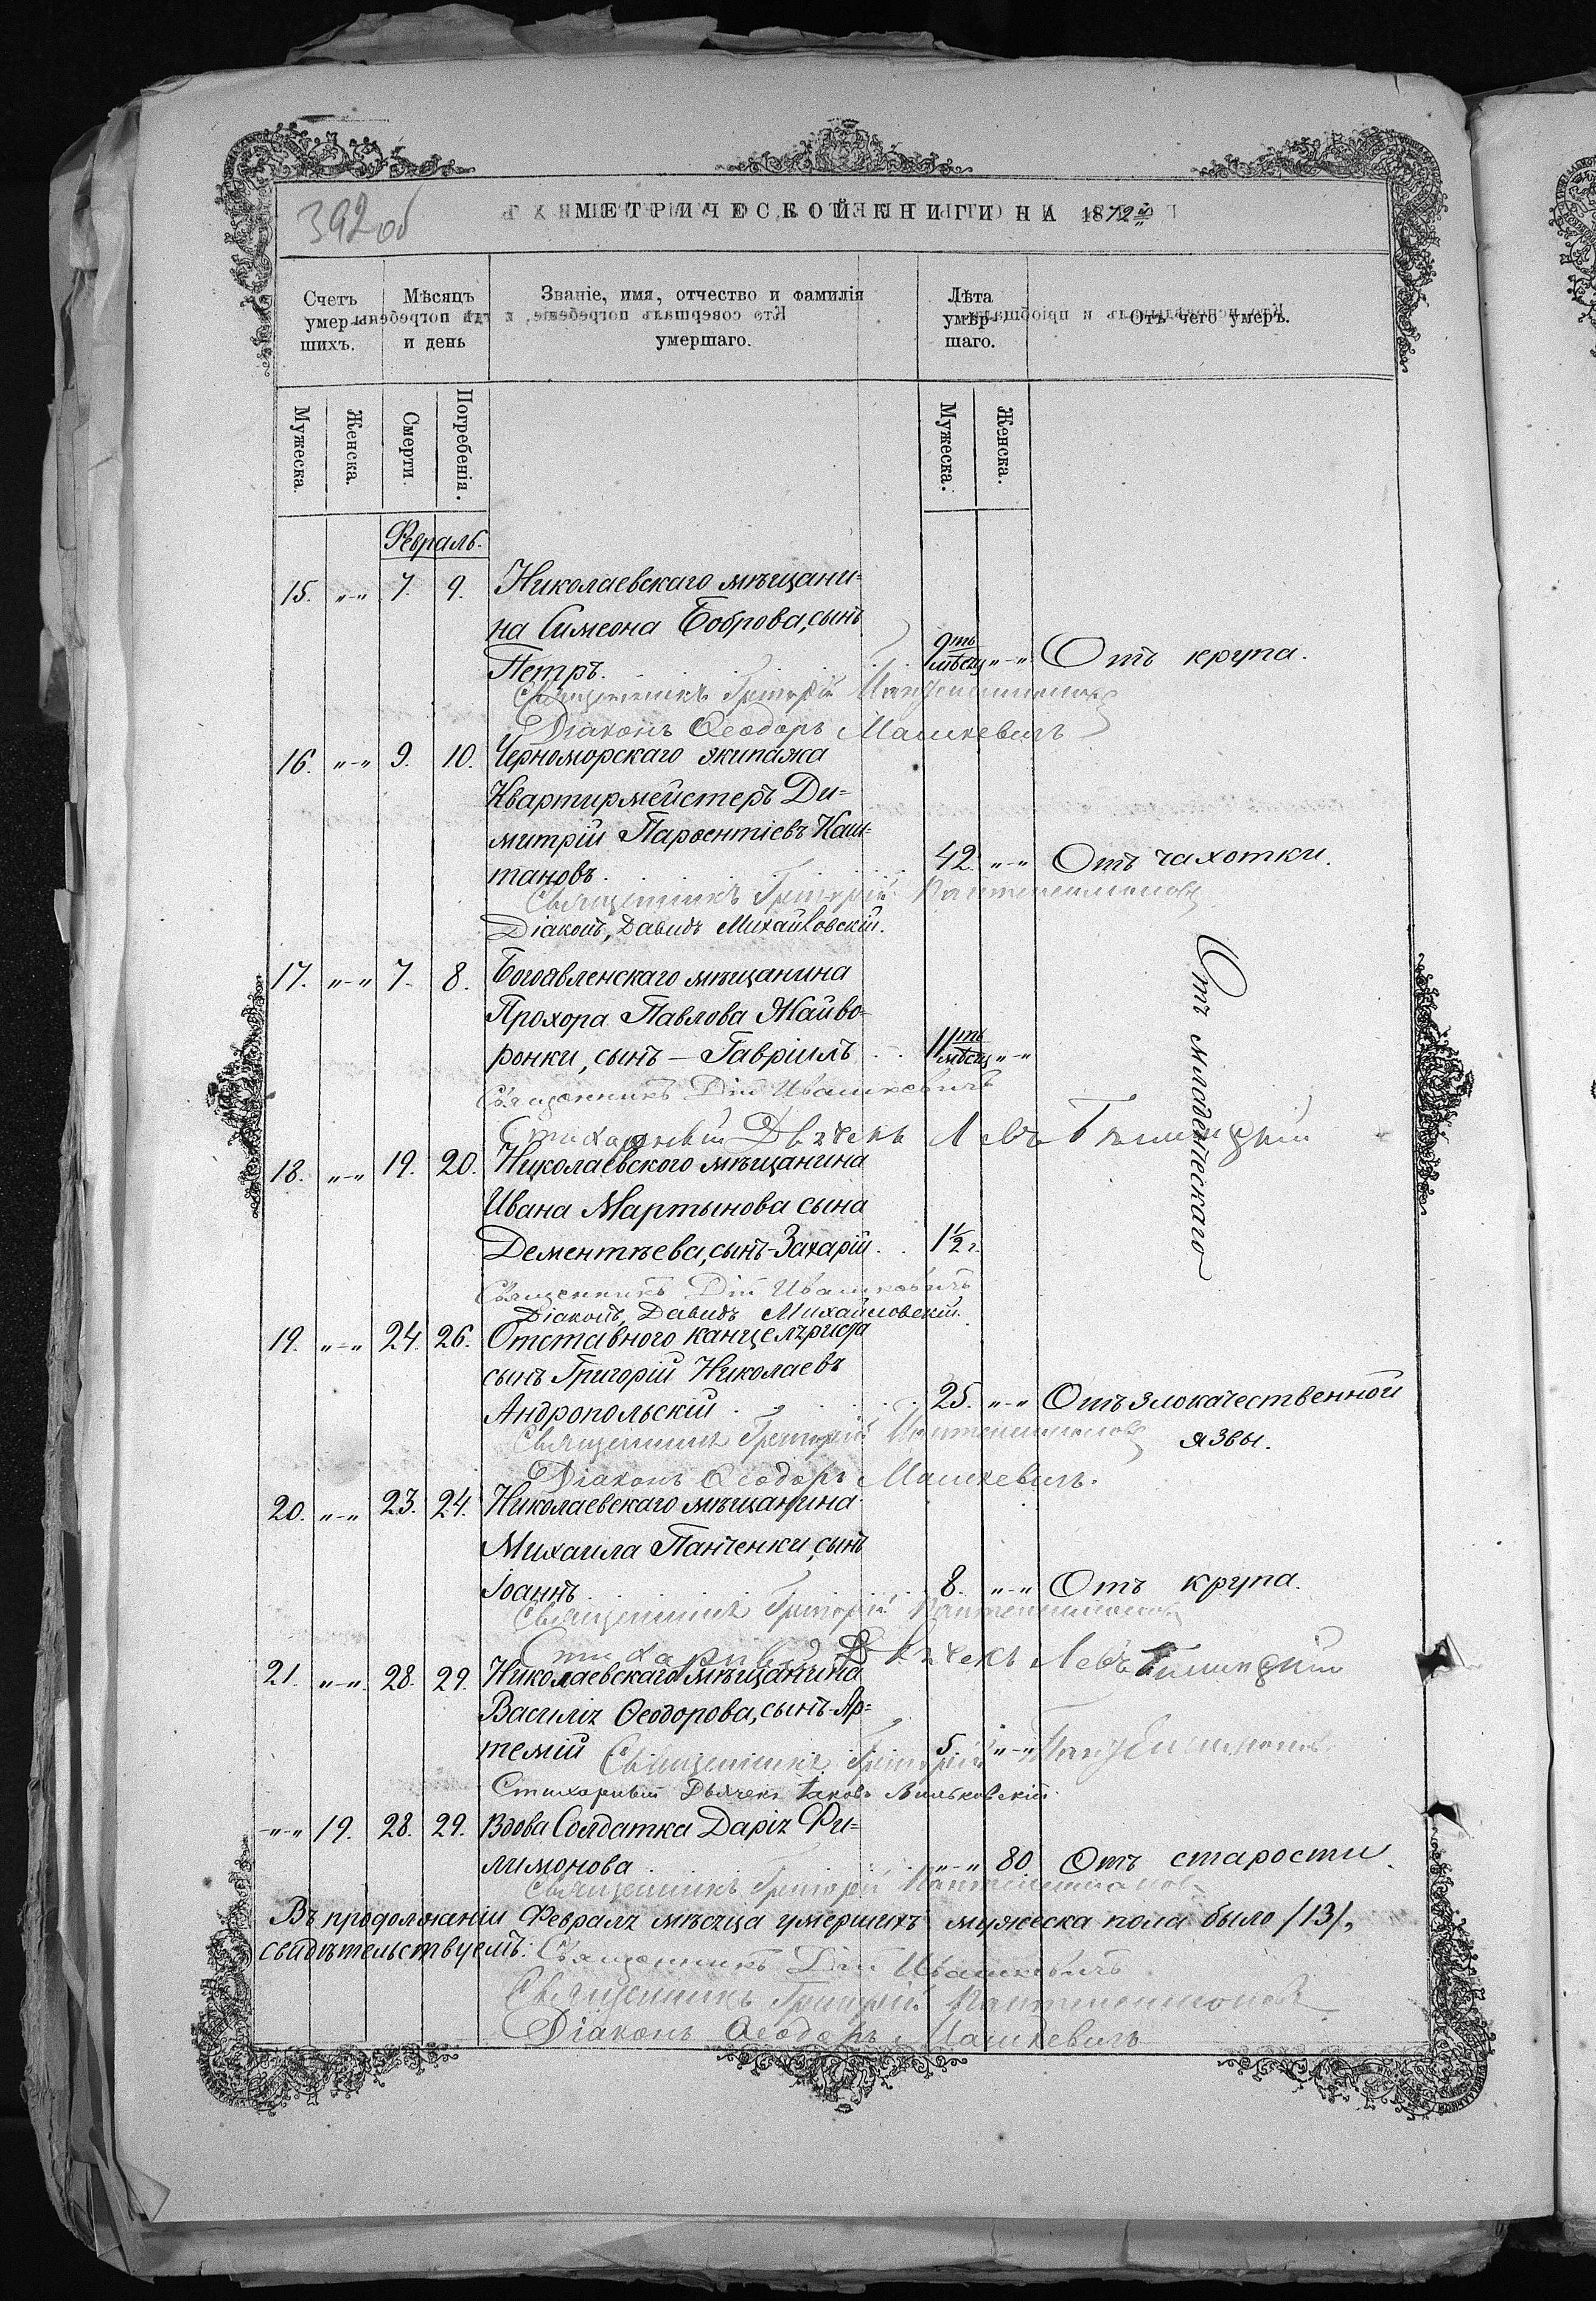 392 об
МЕТРИЧЕСКОЙ КНИГИ НА 1872й
Счетъ умер-шихъ.
Мѣсяцъ и день
Званіе, имя, отчество и фамилія умершаго.
Лѣта умер-шаго.
Отъ чего умеръ.
Мужеска. Женска. Смерти. Погребенія. Мужеска. Женска.
Февраль.
15. „-„ 7. 9. Николаевскаго мѣщани=
на Симеона Боброва, сынъ
Петръ. 9ть мѣсяц „-„ Отъ крупа.
Священникъ Григорій
Діаконъ Ѳеодоръ Машкевичъ
16. „-„ 9. 10. Черноморскаго экипажа
Квартирмейстеръ Ди=
митрій Парѳентіевъ Каш=
тановъ. 42. „-„ Отъ чахотки.
Священникъ Григорій
Діаконъ, Давидъ Михайловскій.
17. „-„ 7. 8. Богоявленскаго мѣщанина
Прохора Павлова Жайво=
ронки, сынъ — Гавріилъ 11ть мѣсяц „-„
Отъ младенческаго
Священникъ Дій Ивашкевичъ
Стихарный Дьячекъ Левъ
18. „-„ 19. 20. Николаевского мѣщанина
Ивана Мартынова сына
Дементьева, сынъ-Захарій. 1½ г.
Священникъ Дій Ивашкевичъ
Діаконъ, Давидъ Михайловскій.
19. „-„ 24. 26. Отставного канцеляриста
сынъ Григорій Николаевъ
Андропольскій 25. „-„ Отъ злокачественной
язвы.
Священникъ Григорій
Діаконъ Ѳеодоръ Машкевичъ.
20. „-„ 23. 24. Николаевскаго мѣщанина
Михаила Панченки, сынъ
Іоаннъ. 8. „-„ Отъ крупа.
Священникъ Григорій
Стихарный Дьячекъ Левъ
21. „-„ 28. 29. Николаевскаго мѣщанина
Василія Ѳеодорова, сынъ-Ар=
темій 5. „-„
Священникъ Григорій
Стихарный Дьячекъ Іаковъ Вильковскій.
„-„ 19. 28. 29. Вдова Солдатка Дарія Фи=
лимонова „-„ 80. Отъ старости.
Священникъ Григорій
Въ продолженіи Февраля мѣсяца умершихъ мужеска пола было /13/,
свидѣтельствуемъ: Священникъ Дій Ивашкевичъ
Священникъ Григорій
Діаконъ Ѳеодоръ Машкевичъ